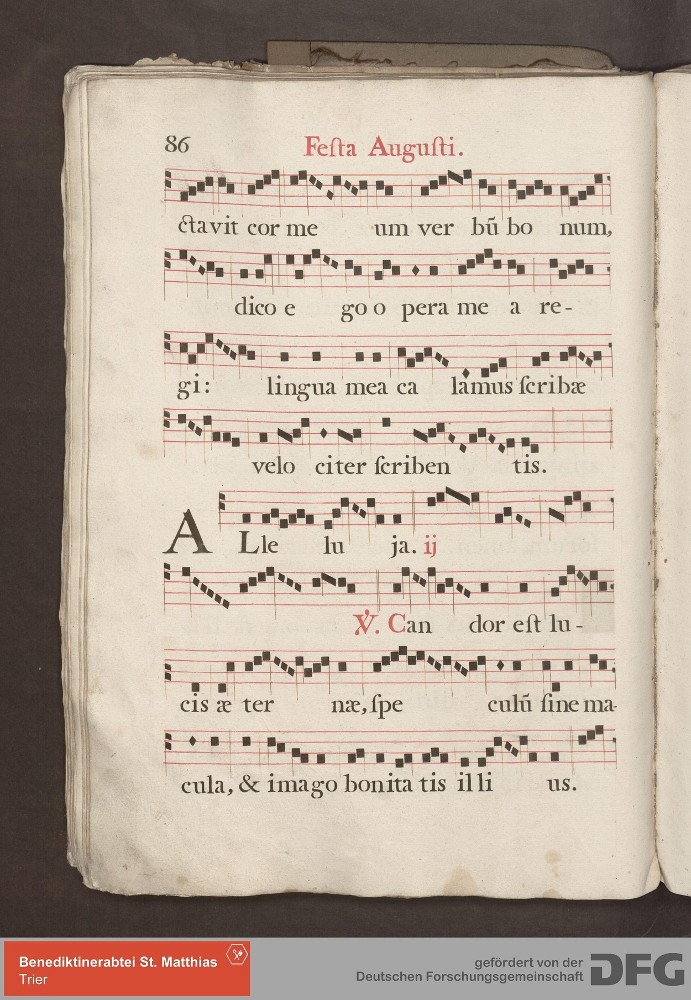 86
Feſta Auguſti.
ctavit cor me um ver bū bo num,
dico e go o pera me a re-
gi: lingua mea ca lamus ſcribæ
velo citer ſcriben tis.
A Lle lu ja. ij
℣. Can dor eſt lu-
cis æ ter næ, ſpe culū ſine ma-
cula, & imago bonita tis il li us.
Benediktinerabtei St. Matthias
Trier
gefördert von der
Deutschen Forschungsgemeinschaft
DFG